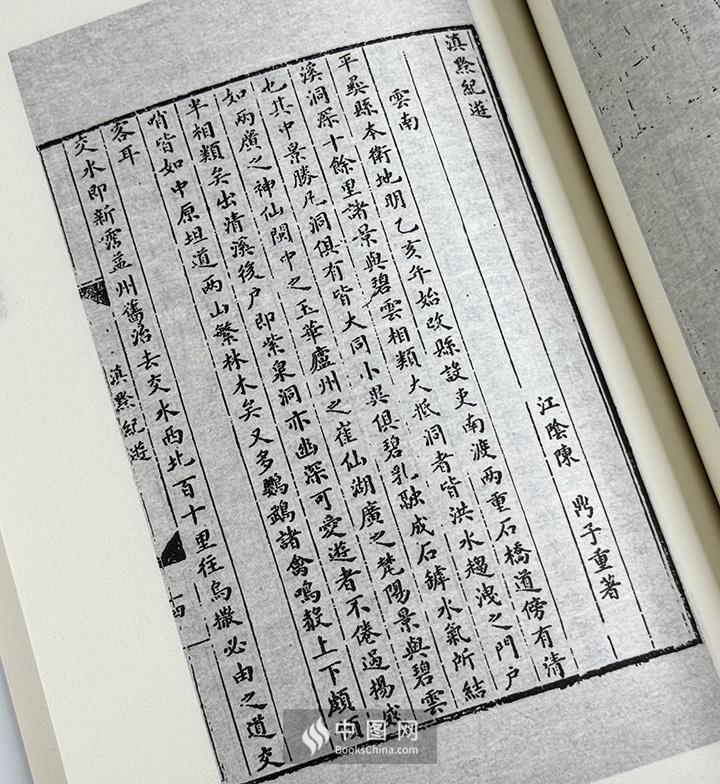 滇黔紀遊
江陰陳 鼎子重著
雲南
平彝縣本衛地明乙亥年始改縣設吏南渡兩重石橋道傍有清
溪洞深十餘里諸景與碧雲相類大抵洞者皆洪水趨洩之門戶
也其中景勝凡洞俱有皆大同小異俱碧乳融成石罅水氣所結
如兩廣之神仙閩中之玉華廬州之崔仙湖廣之梵陽景與碧雲
半相類矣出清溪後户即紫泉洞亦幽深可愛遊者不倦過楊威
哨皆如中原坦道两山繁林木矣又多鸚鵡諸禽鳴聲上下頗頓
客耳
交水即新霑益州舊治去交水西北百十里往烏撒必由之道交
滇黔紀遊
中图网
BooksChina.com